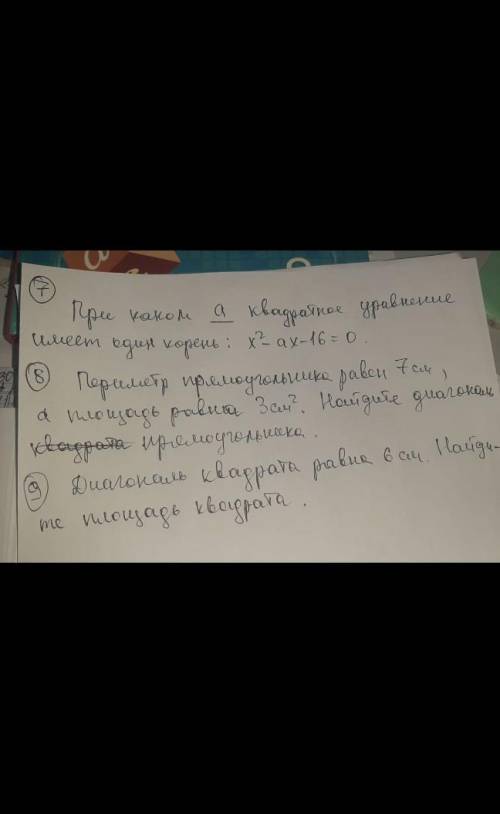 7
При каком а квадратное уравнение
имеет один корень: x² - ax - 16 = 0.
8 Периметр прямоугольника равен 7 см,
а площадь равна 3 см². Найдите диагональ
квадрата прямоугольника.
9 Диагональ квадрата равна 6 см. Найди-
те площадь квадрата.